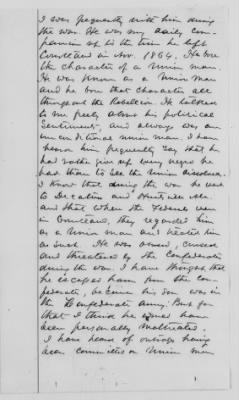 I was frequently with him during
the war. He was my daily com-
panion up to the time he left
Courtland in Nov. 1864. He bore
the character of a Union man
He was known as a Union man
and he bore that character all
throughout the Rebellion. He talked
to me freely about his political
Sentiment, and always was an
unconditional Union man. I have
heard him frequently say that he
had rather give up every negro he
had than to see the Union dissolved.
I know that during the war he went
to Decatur and Huntsville Ala.
and that when the Federals were
in Courtland, they regarded him
as a Union man and treated him
as such. He was abused, cursed
and threatened by the Confederates
during the war. I have thought that
he escaped harm from the Con-
federates, because his son was in
the Confederate army. But for
that I think he would have
been personally maltreated.
I have heard of outrages having
been committed on Union men